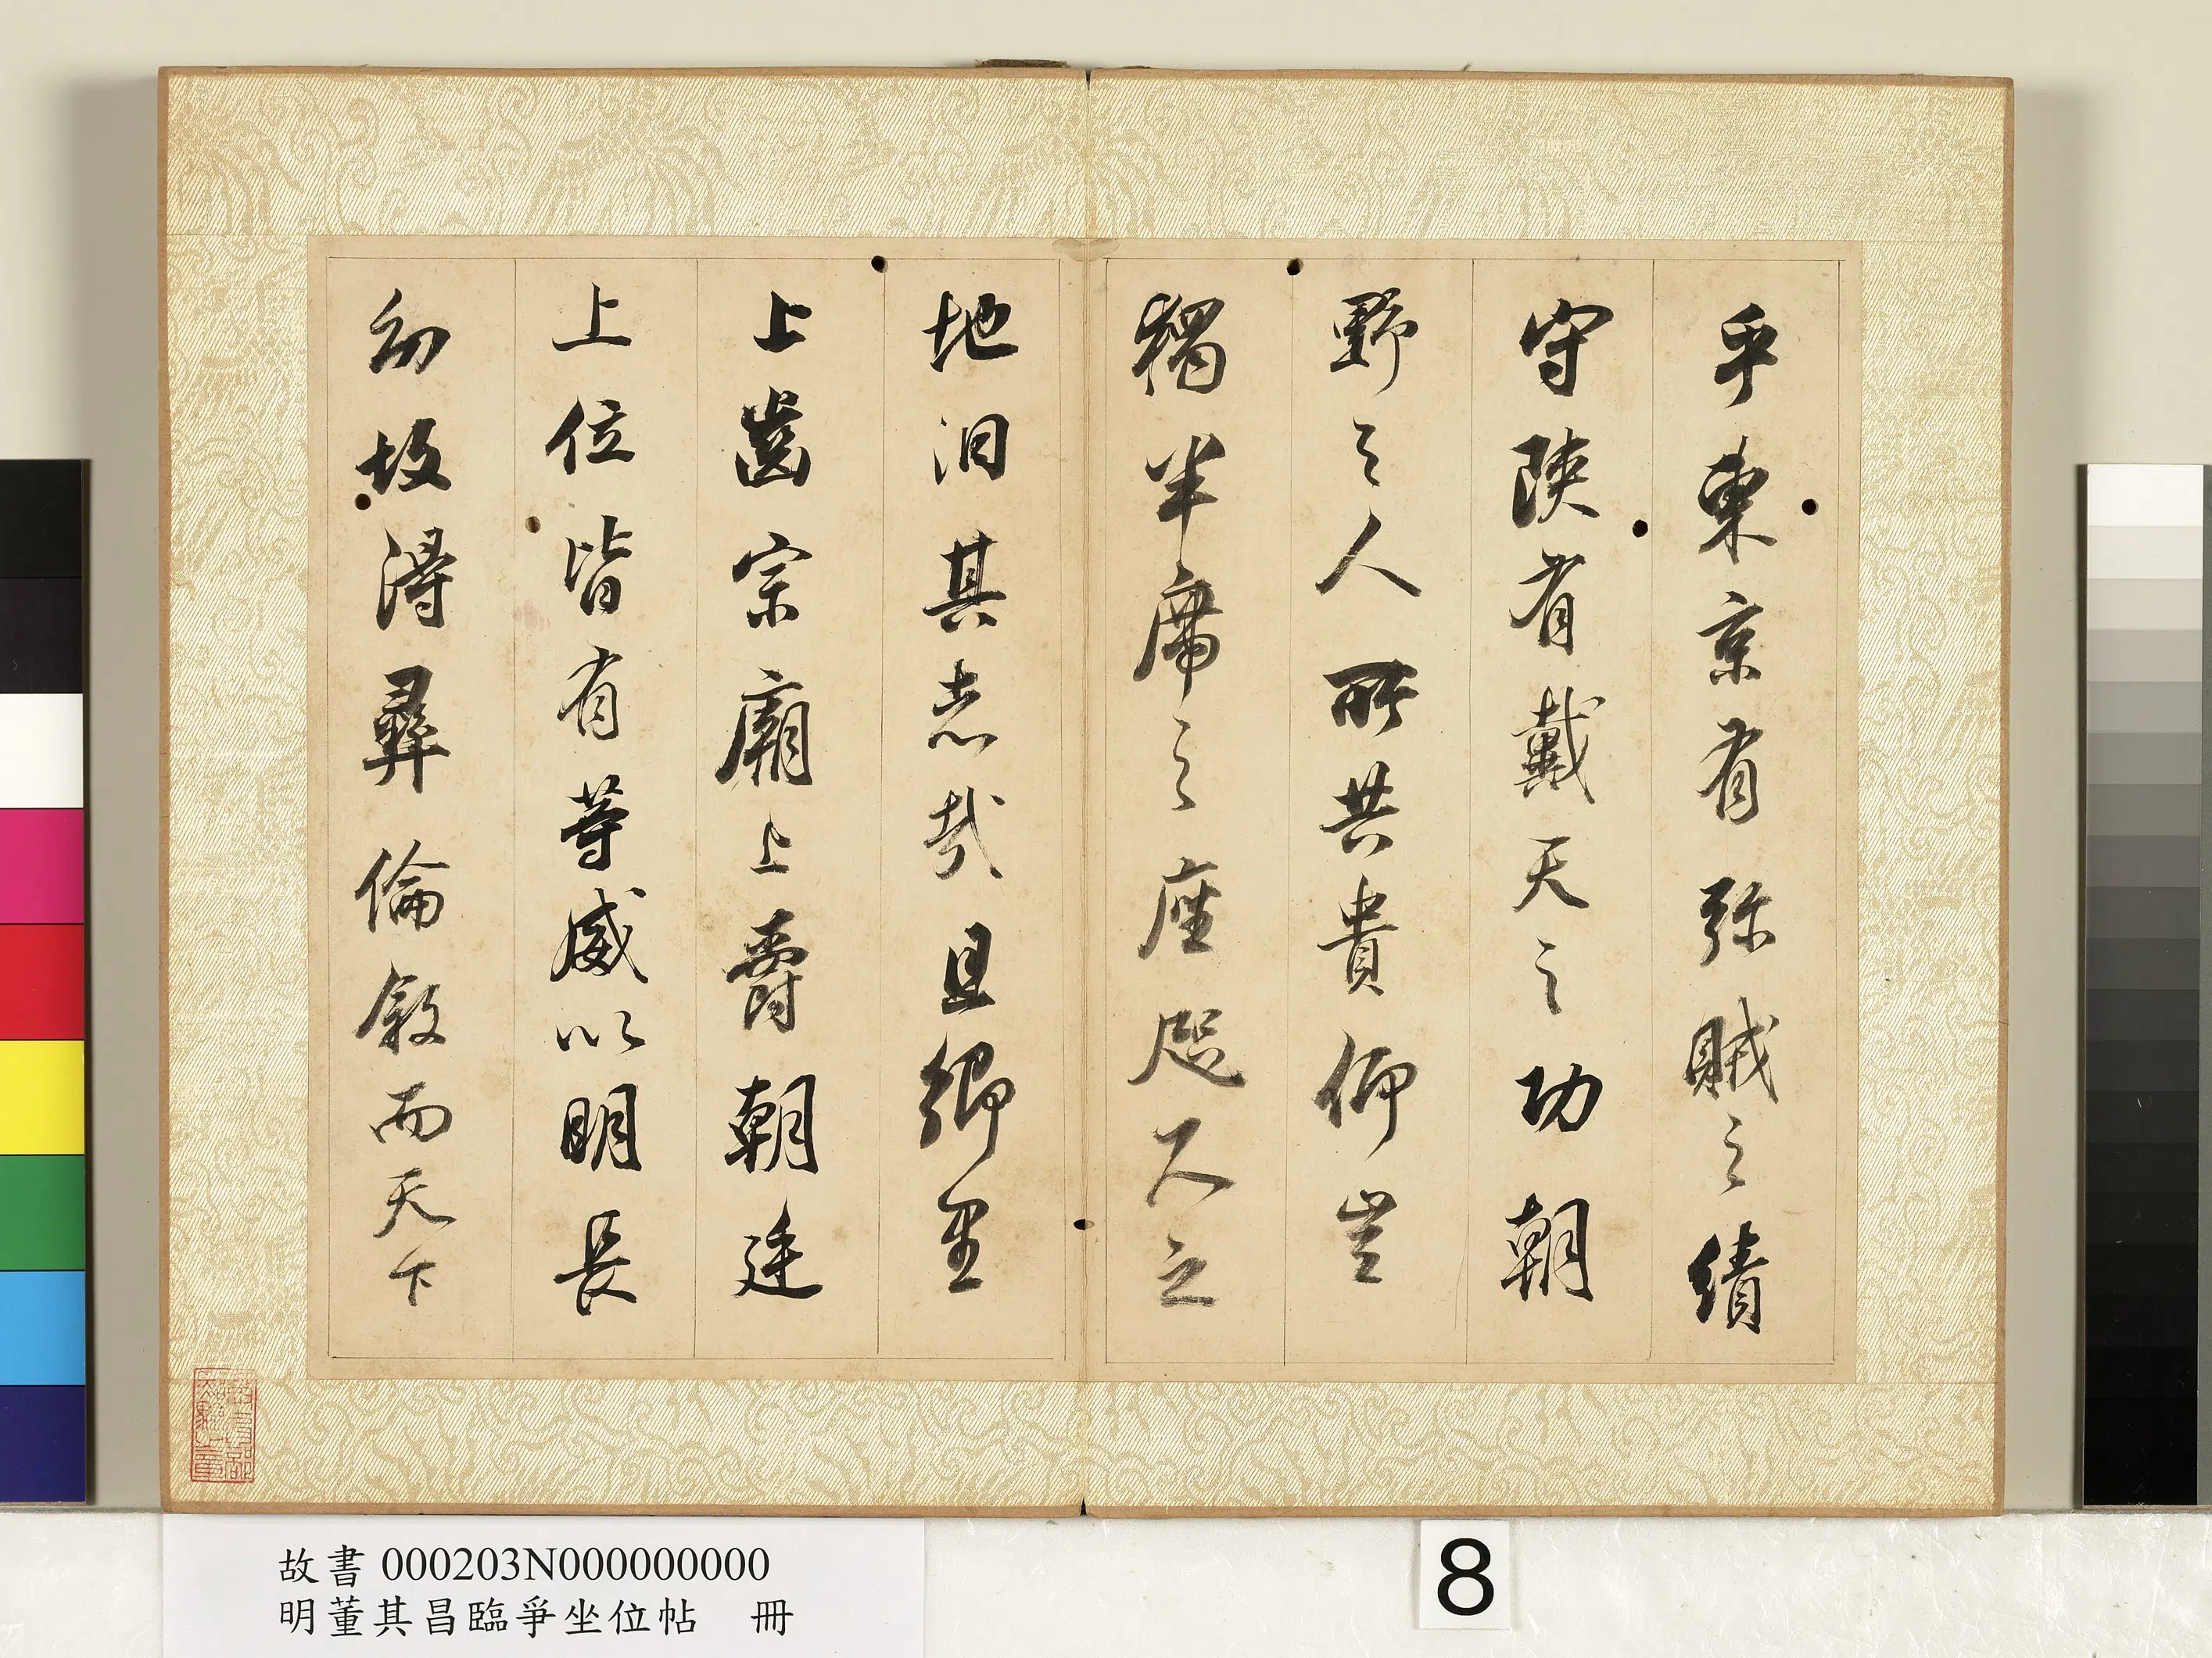 乎東京有殄賊之績
守陝有戴天之功朝
野之人所共貴仰豈
獨半席之座咫尺之
地汨其志哉且鄉里
上齒宗廟上爵朝廷
上位皆有等威以明長
幼故得彝倫敘而天下
故書 000203N000000000
明董其昌臨爭坐位帖 冊
8